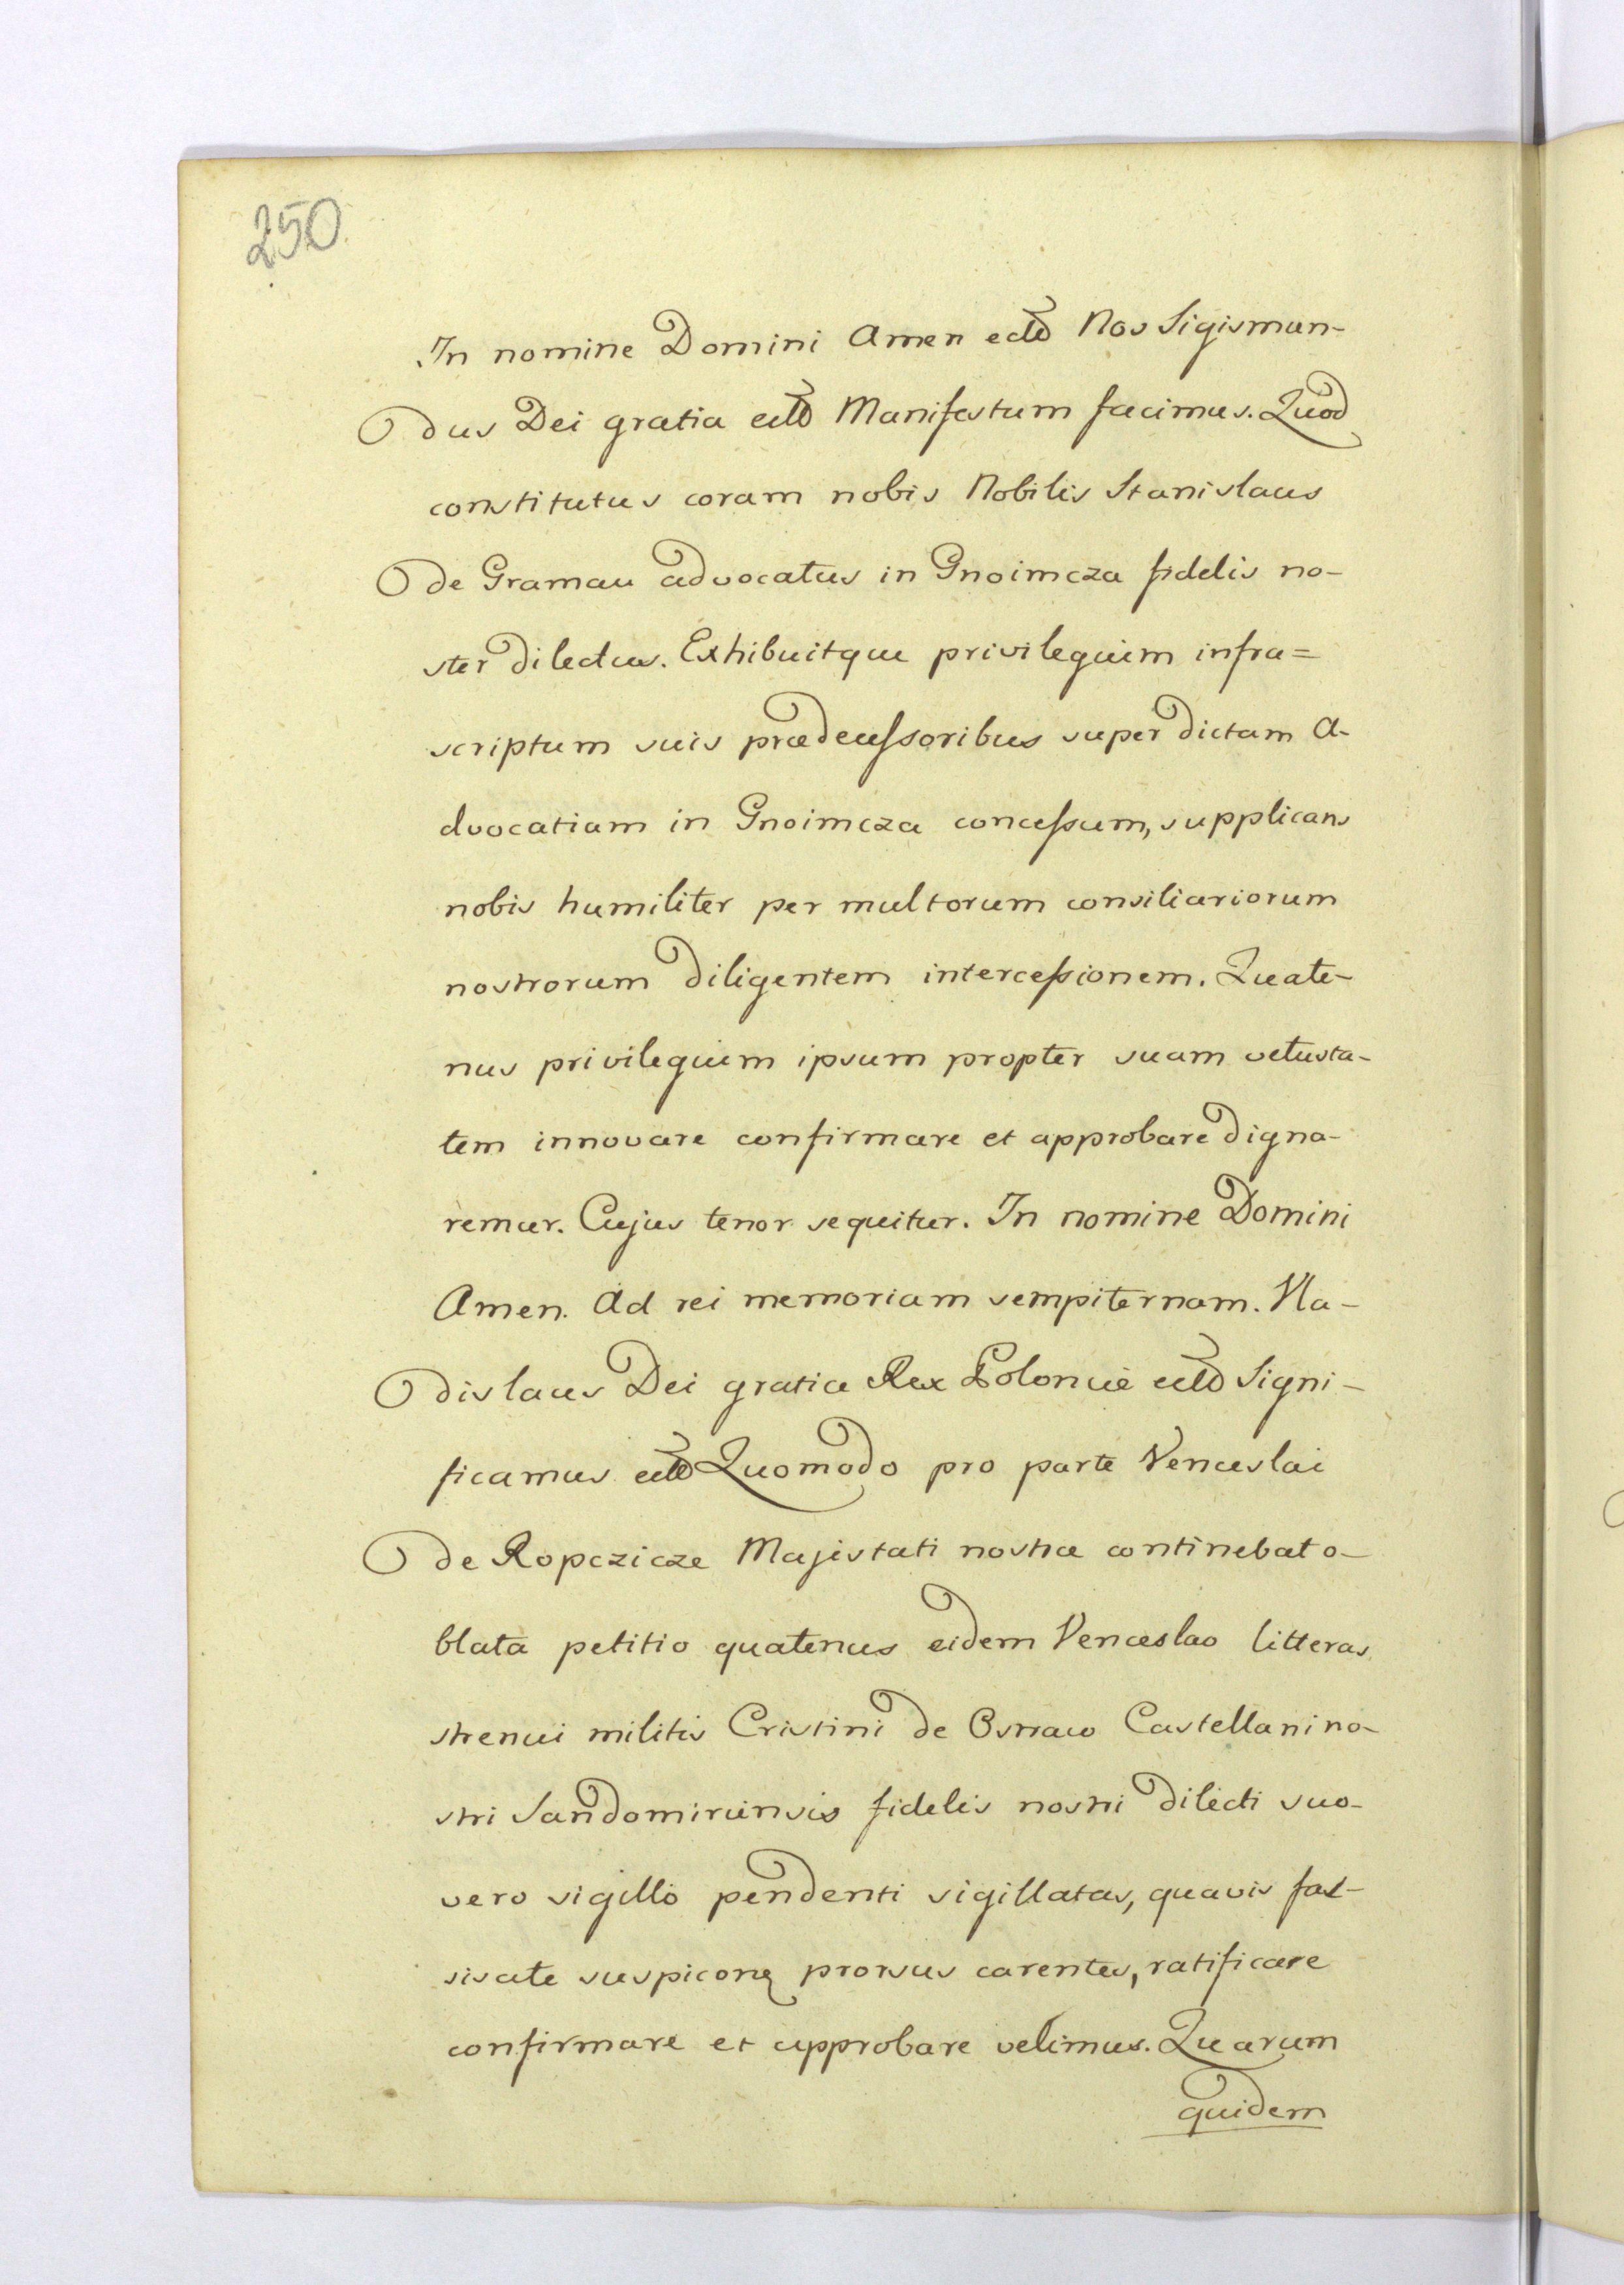 250
In nomine Domini Amen ectt Nos Sigismun-
dus Dei gratia ectt Manifestum facimus. Quod
constitutus coram nobis Nobilis Stanislaus
de Gramau advocatus in Gnoimcza fidelis no-
ster dilectus. Exhibuitque privilegium infra=
scriptum suis prædecessoribus super dictam A-
dvocatiam in Gnoimcza concessum, supplicans
nobis humiliter per multorum consiliariorum
nostrorum diligentem intercessionem. Quate-
nus privilegium ipsum propter suam vetusta-
tem innovare confirmare et approbare digna-
remur. Cujus tenor sequitur. In nomine Domini
Amen. Ad rei memoriam sempiternam. Vla-
dislaus Dei gratia Rex Poloniæ ectt Signi-
ficamus ectt Quomodo pro parte Venceslai
de Ropczicze Majestati nostræ continebat o-
blata petitio quatenus eidem Venceslao litteras
strenui militis Cristini de Ostrow Castellani no-
stri Sandomiriensis fidelis nostri dilecti suo-
vero sigillo pendenti sigillatas, quavis fal-
sisate suspicone prorsus carentes, ratificare
confirmare et approbare velimus. Quarum
quidem